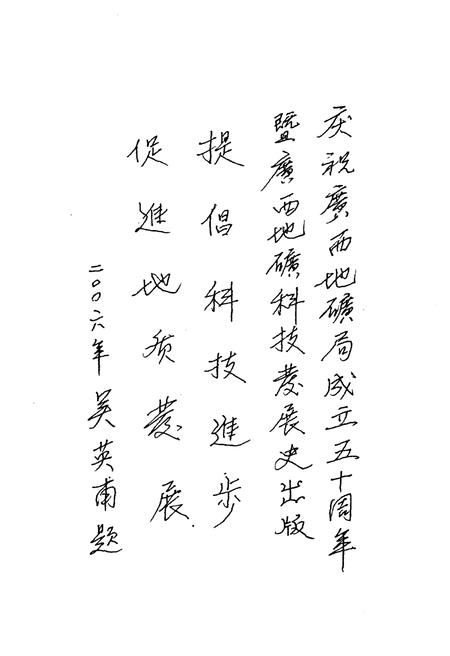 庆祝廣西地礦局成立五十周年
暨廣西地礦科技發展史出版
提倡科技進步
促進地质發展
二〇〇六年 吴英甫题